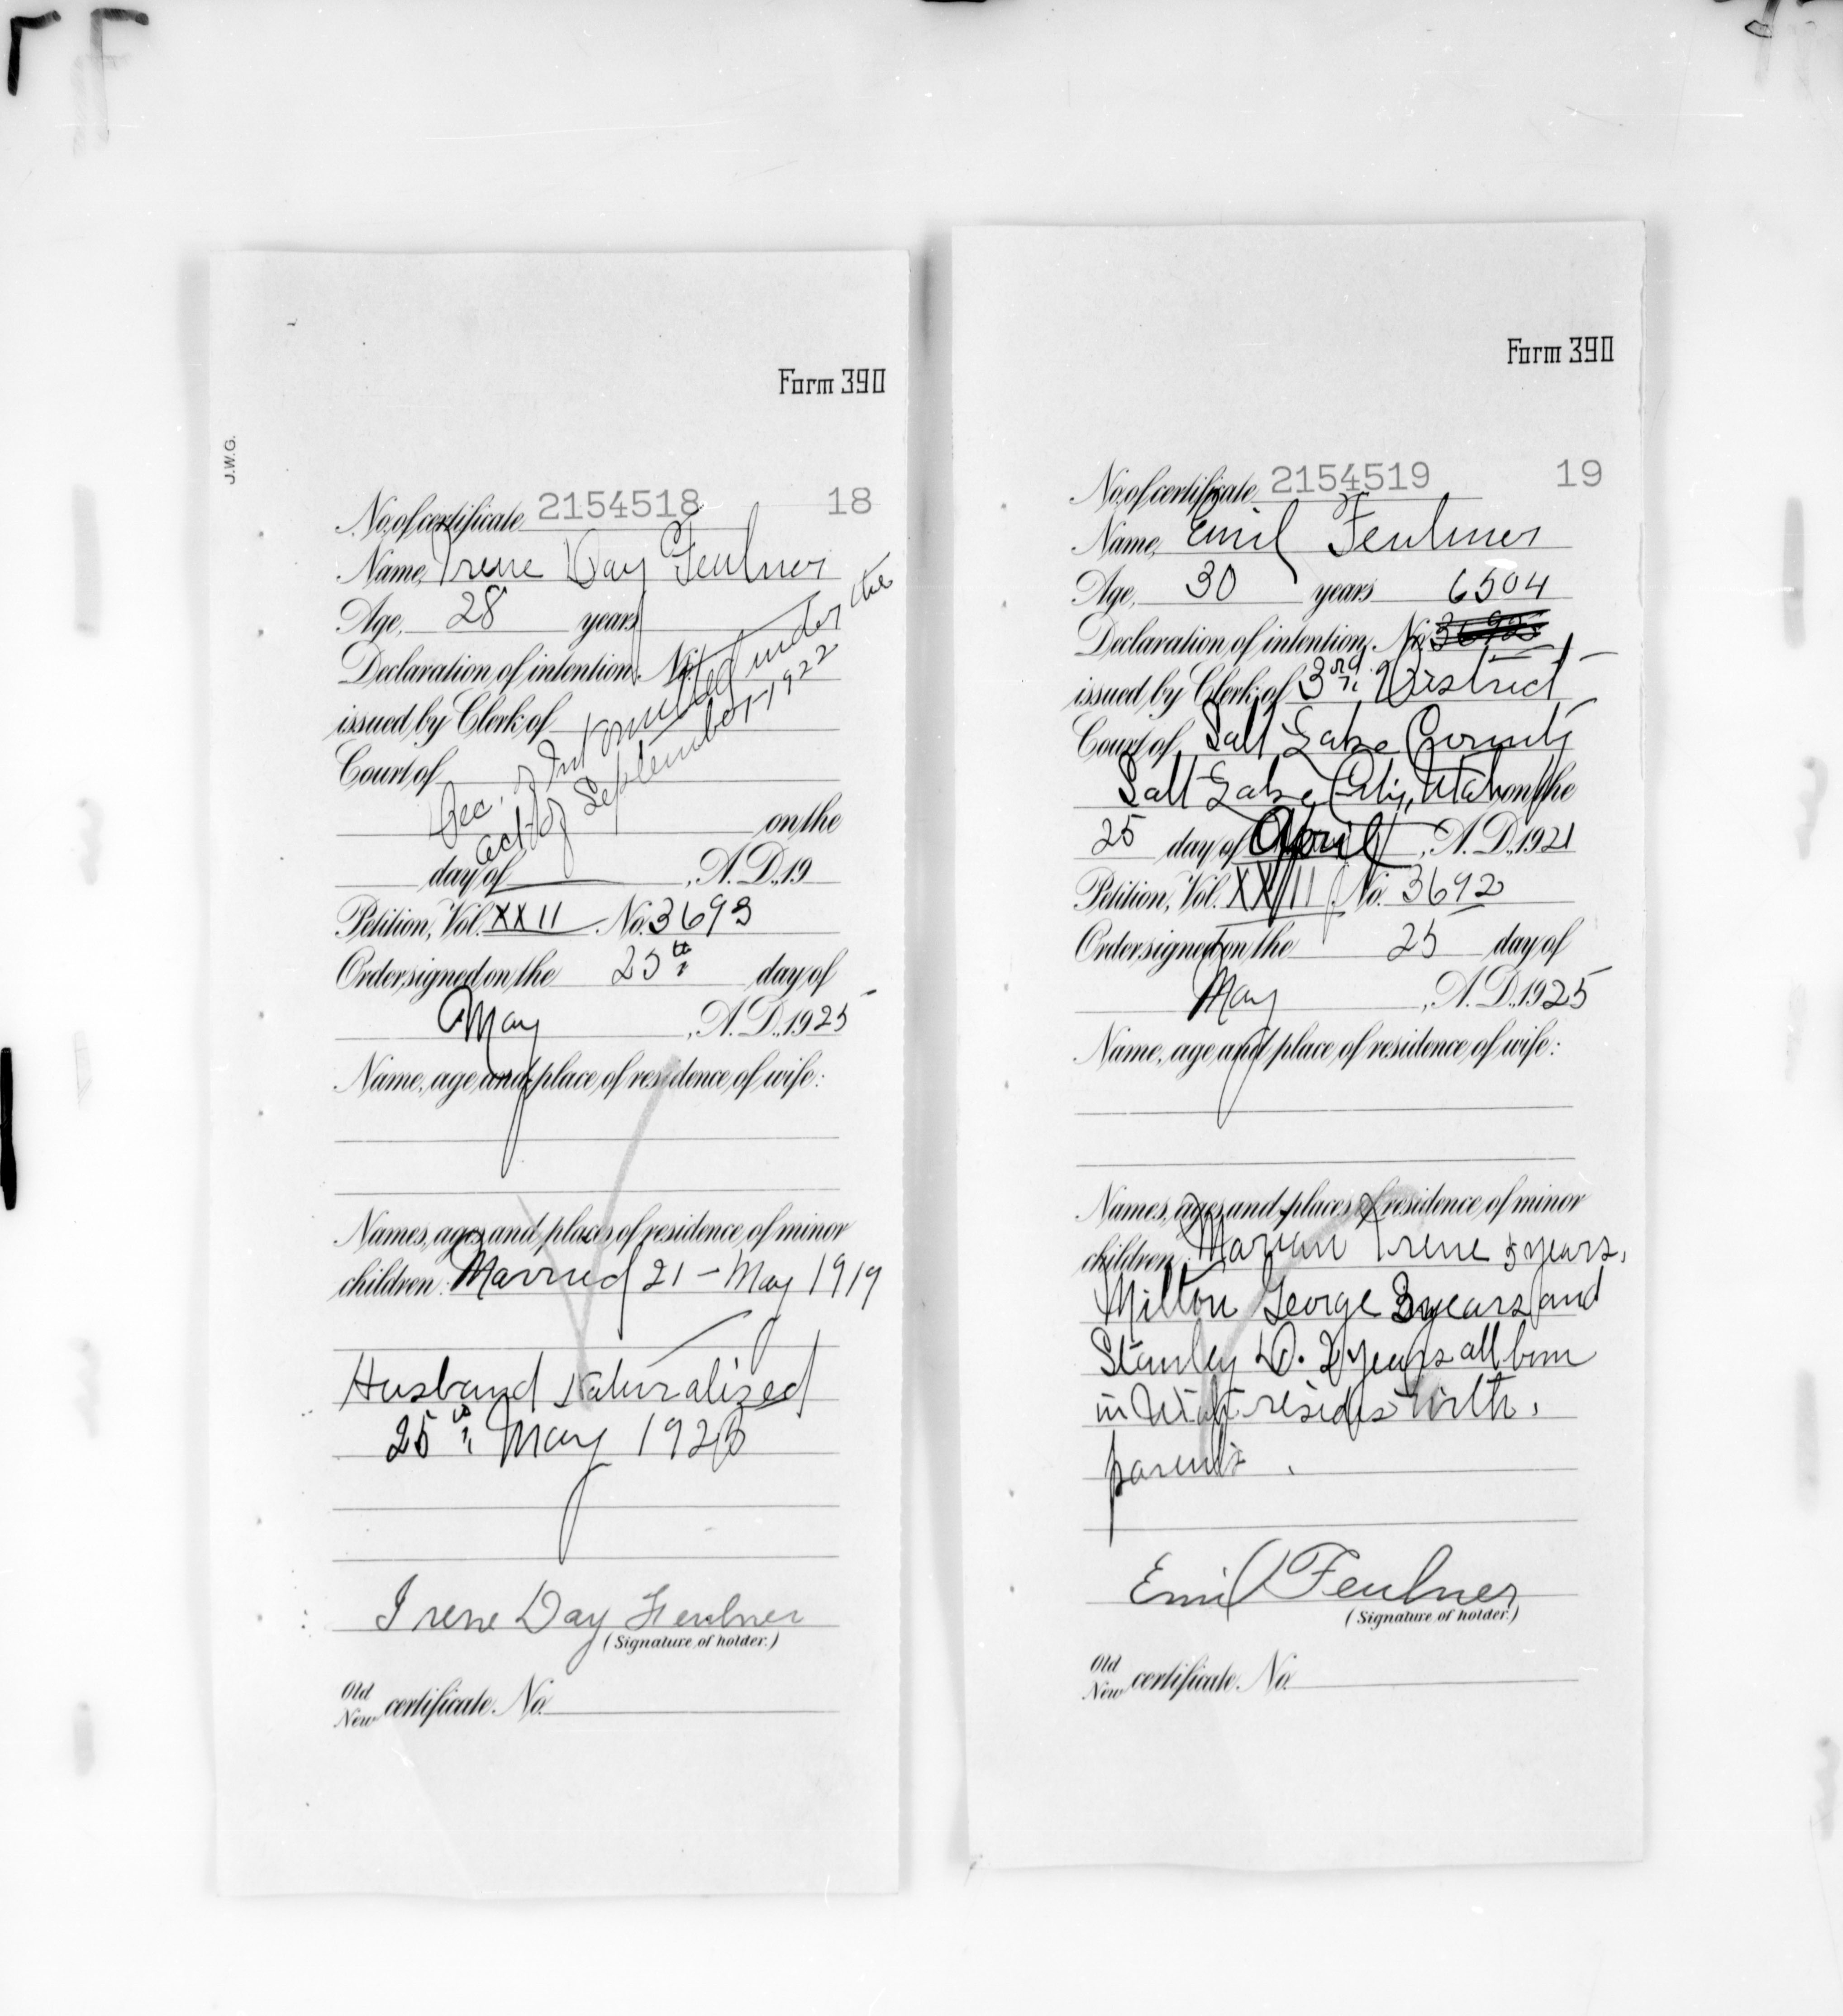 Form 390
J.W.G.
No. of certificate 2154518 18
Name, Irene Day Feulner
Age, 28 years
Declaration of intention, No.
issued by Clerk of
Court of
Dec. of Int omitted under the
act of September 1922
on the
day of , A. D. 19
Petition, Vol. XXII No. 3693
Order signed on the 25th day of
May , A. D. 1925
Name, age and place of residence of wife:
Names, ages and places of residence of minor
children: Married 21 - May 1919
Husband Naturalized
25 May 1925
Irene Day Feulner
(Signature of holder.)
Old
New certificate No.
Form 390
No. of certificate 2154519 19
Name, Emil Feulner
Age, 30 years 6504
Declaration of intention, No.
issued by Clerk of 3rd District
Court of Salt Lake County
Salt Lake City, Utah on the
25 day of April , A. D. 1921
Petition, Vol. XXII No. 3692
Order signed on the 25 day of
May , A. D. 1925
Name, age and place of residence of wife:
Names, ages and places of residence of minor
children: Marian Irene 5 years,
Milton George 3 years and
Stanley D. 2 years all born
in Utah resides with
parents.
Emil Feulner
(Signature of holder.)
Old
New certificate No.